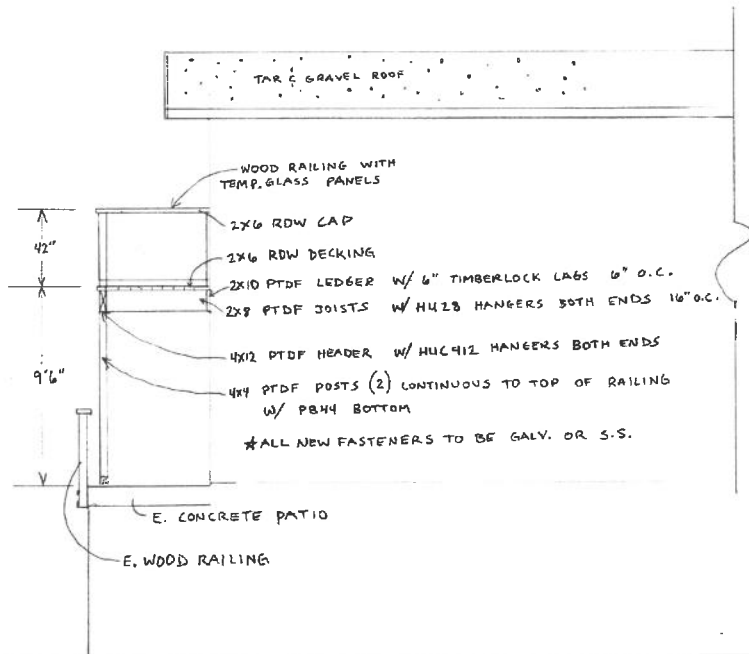 TAR & GRAVEL ROOF
WOOD RAILING WITH
TEMP. GLASS PANELS
42"
2X6 RDW CAP
2X6 RDW DECKING
2X10 PTDF LEDGER W/ 6" TIMBERLOCK LAGS 6" O.C.
2X8 PTDF JOISTS W/ HU28 HANGERS BOTH ENDS 16" O.C.
4X12 PTDF HEADER W/ HUC412 HANGERS BOTH ENDS
9'6"
4X4 PTDF POSTS (2) CONTINUOUS TO TOP OF RAILING
W/ PB44 BOTTOM
*ALL NEW FASTENERS TO BE GALV. OR S.S.
E. CONCRETE PATIO
E. WOOD RAILING